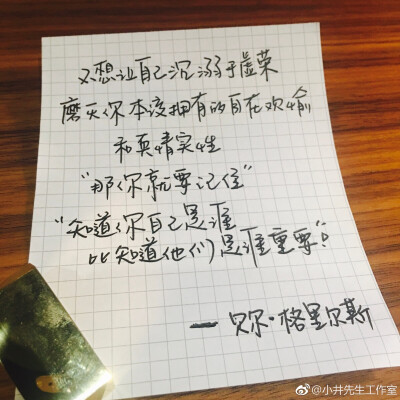 不想让自己沉溺于虚荣
磨灭你本该拥有的自在欢愉
和真情实性
"那你就要记住"
"知道你自己是谁
比知道他们是谁重要"。
— 贝尔·格里尔斯
@小井先生工作室